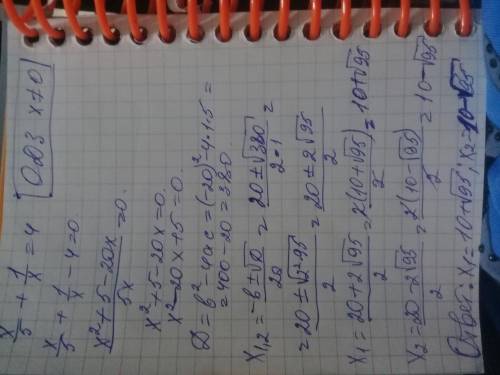 x/5 + 1/x = 4 ОДЗ x≠0
x/5 + 1/x - 4 = 0
(x² + 5 - 20x)/5x = 0.
x² + 5 - 20x = 0.
x² - 20x + 5 = 0.
D = b² - 4ac = (-20)² - 4·1·5 =
= 400 - 20 = 380
x₁,₂ = (-b ± √D)/2a = (20 ± √380)/2·1 =
= (20 ± √2²·95)/2 = (20 ± 2√95)/2
x₁ = (20 + 2√95)/2 = 2(10 + √95)/2 = 10 + √95
x₂ = (20 - 2√95)/2 = 2(10 - √95)/2 = 10 - √95
Ответ: x₁ = 10 + √95; x₂ = 10 - √95